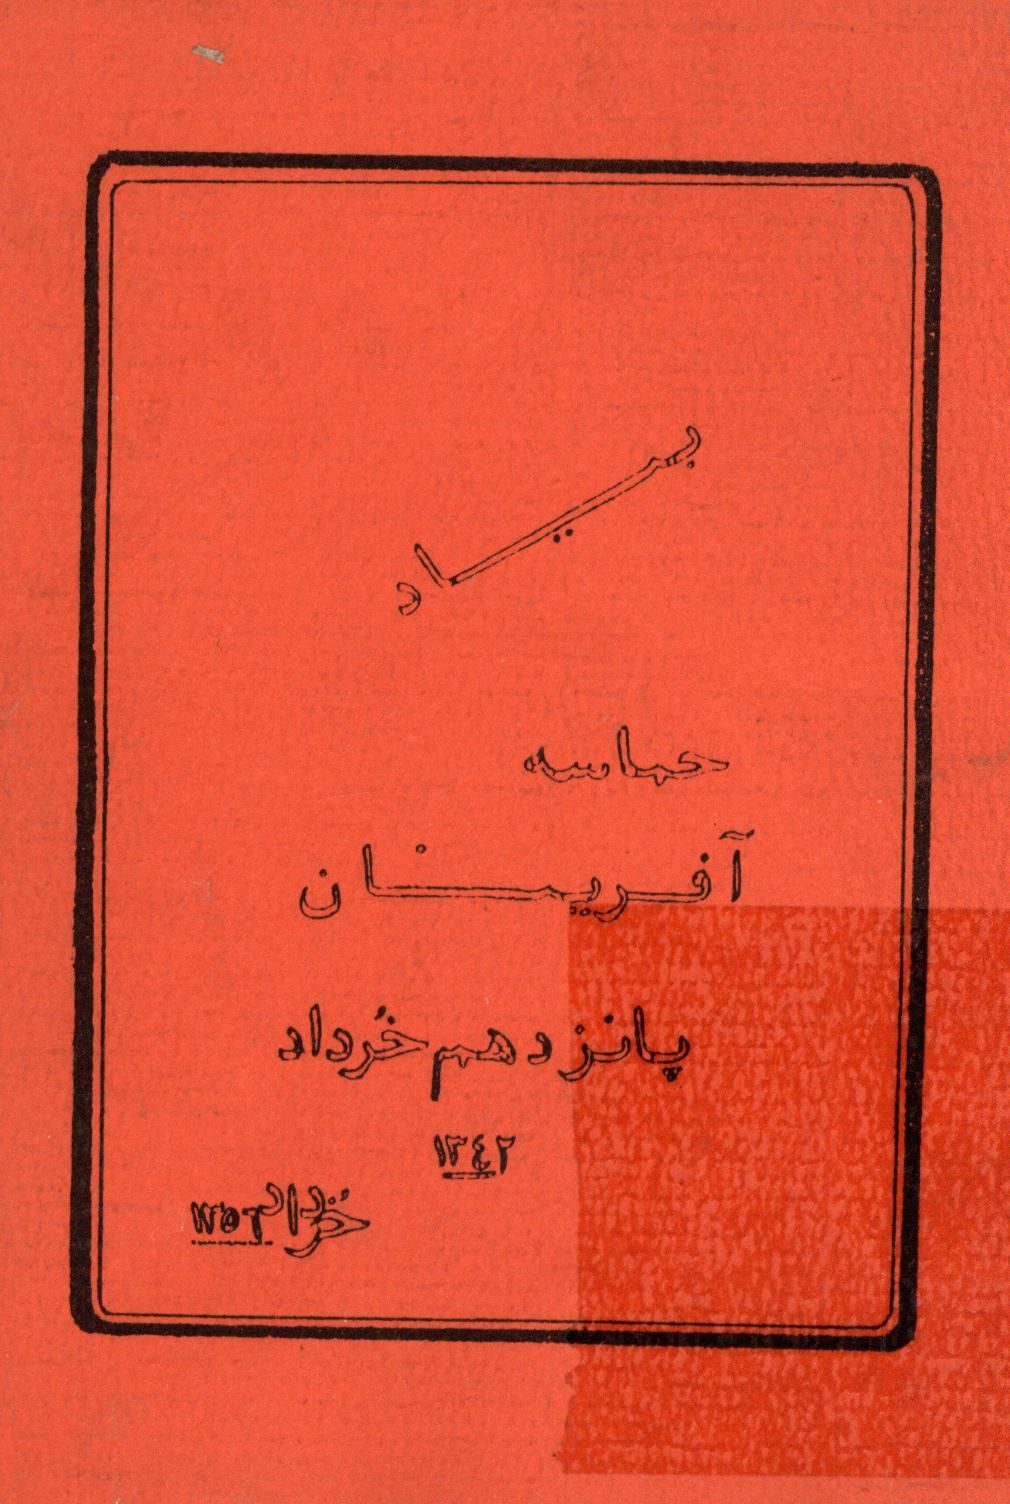 بیاد
حماسه
آفرینان
پانزدهم خُرداد
۱۳٤۲
خرداد ۱۳۵٦